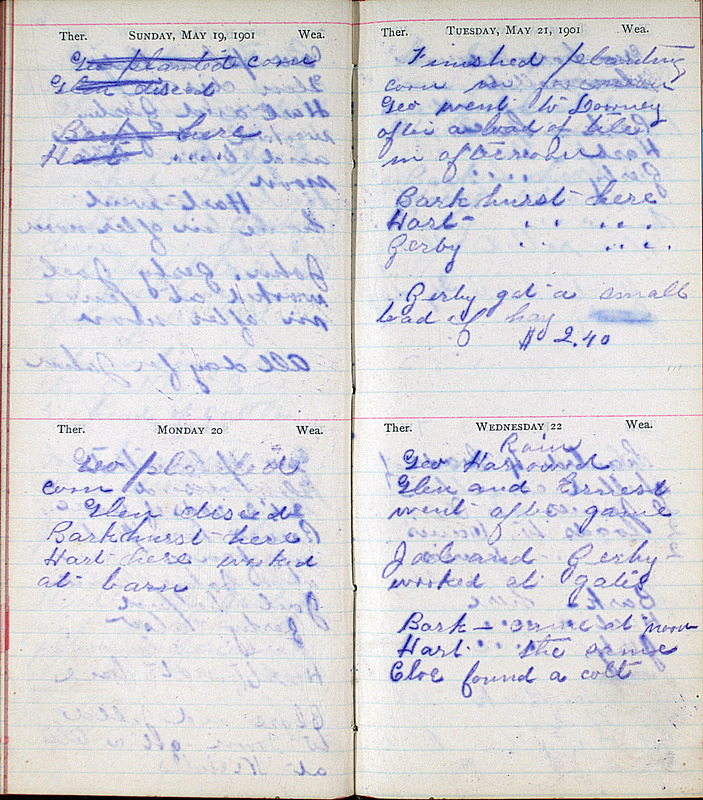 Ther. SUNDAY, MAY 19, 1901 Wea.
Geo planted corn
Glen disced
Bark here
Hart
Ther. MONDAY 20 Wea.
Geo planted
corn
Glen disced
Barkhurst here
Hart here worked
at barn
Ther. TUESDAY, MAY 21, 1901 Wea.
Finished planting
corn in
Geo went to Downey
after a load of tile
in afternoon
Barkhurst here
Hart " "
Gerby " "
Gerby got a small
load of hay
$ 2.40
Ther. WEDNESDAY 22 Wea.
Rain
Geo Harrowed
Glen and Ernest
went after game
Joel and Gerby
worked at gates
Bark - came at noon
Hart the same
Cloe found a colt